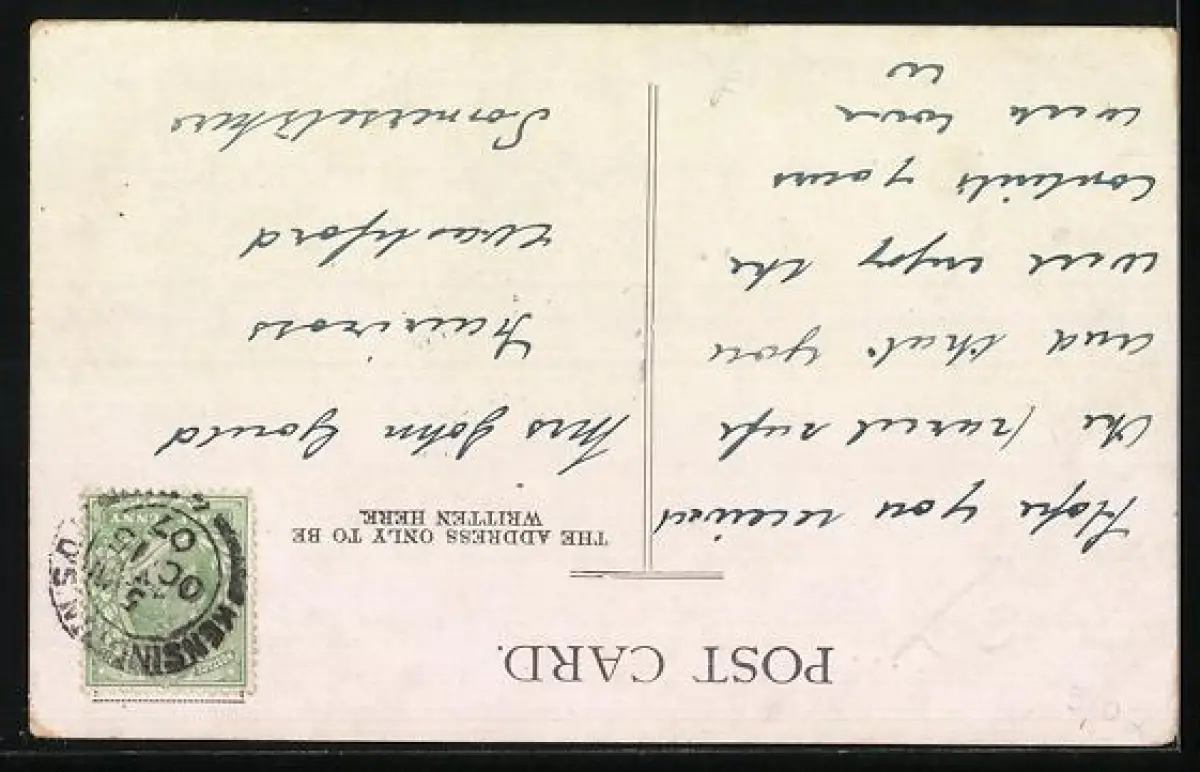 POST CARD.
Hope you received
the parcel safe
and that you
will enjoy the
contents yours
with love
THE ADDRESS ONLY TO BE
WRITTEN HERE.
Mrs John Gould
Washford
Somersetshire
OC 5
07